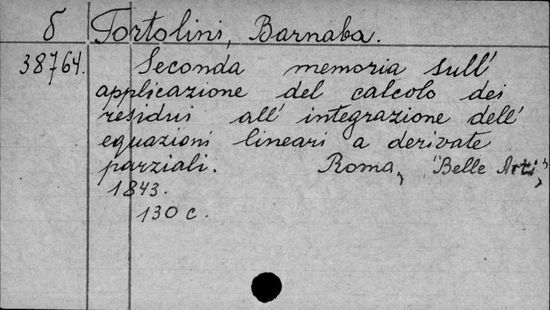 б Tortolini, Barnaba.
38764. Seconda memoria sull'
applicazione del calcolo dei
residui all' integrazione dell'
equazioni lineari a derivate
parziali. Roma, "Belle Arti",
1843.
130 c.